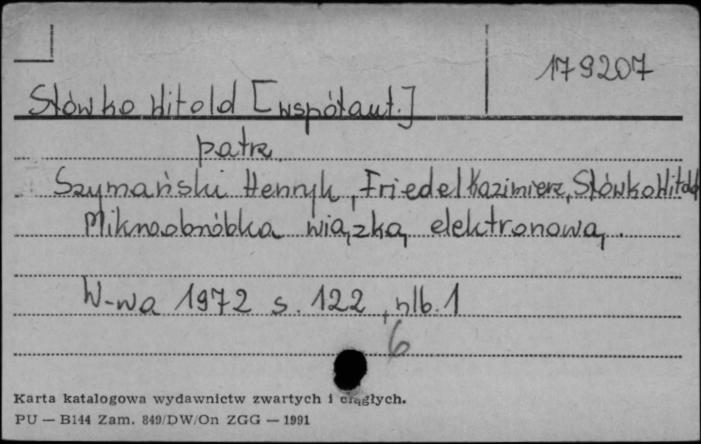 179207
Słówko Witold [współaut.]
patrz
Szymański Henryk, Friedel Kazimierz, Słówko Witold
Mikroobróbka wiązką elektronową.
W-wa 1972 s. 122, nlb. 1
6
Karta katalogowa wydawnictw zwartych i ciągłych.
PU — B144 Zam. 849/DW/On ZGG — 1991